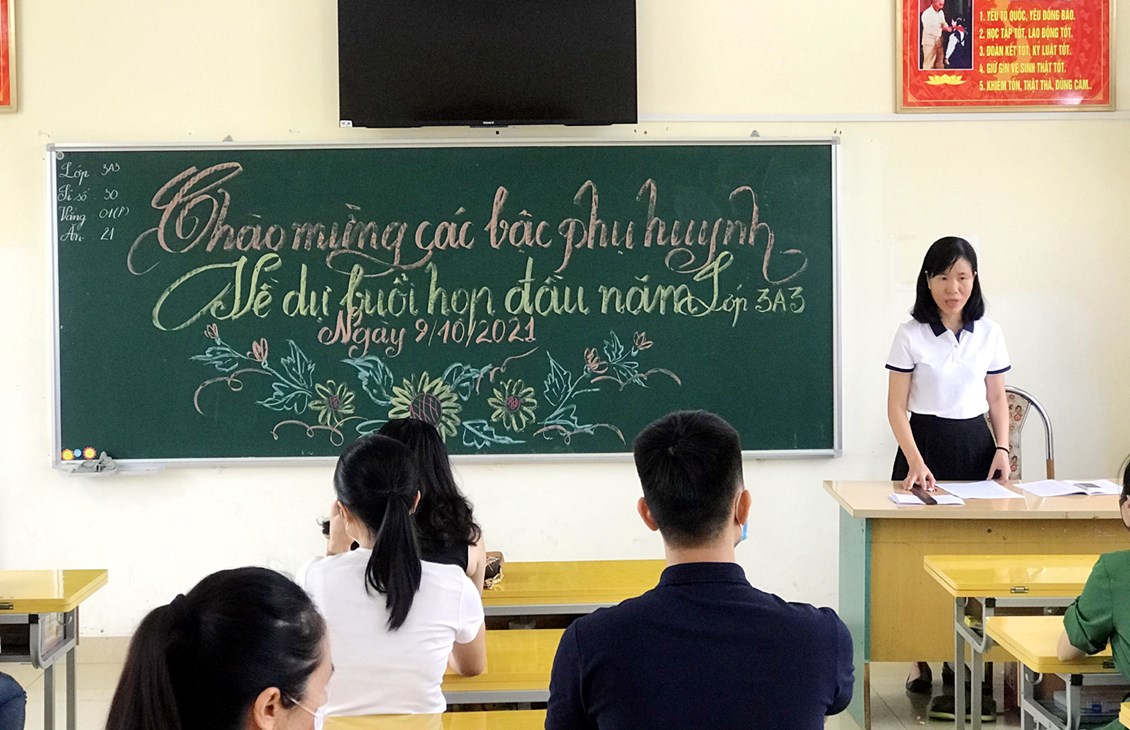 1. YÊU TỔ QUỐC, YÊU ĐỒNG BÀO.
2. HỌC TẬP TỐT, LAO ĐỘNG TỐT.
3. ĐOÀN KẾT TỐT, KỶ LUẬT TỐT.
4. GIỮ GÌN VỆ SINH THẬT TỐT.
5. KHIÊM TỐN, THẬT THÀ, DŨNG CẢM..
Lớp 3A3
Sĩ số 30
Vắng 01(P)
Ăn 21
Chào mừng các bậc phụ huynh
Về dự buổi họp đầu năm Lớp 3A3
Ngày 9/10/2021